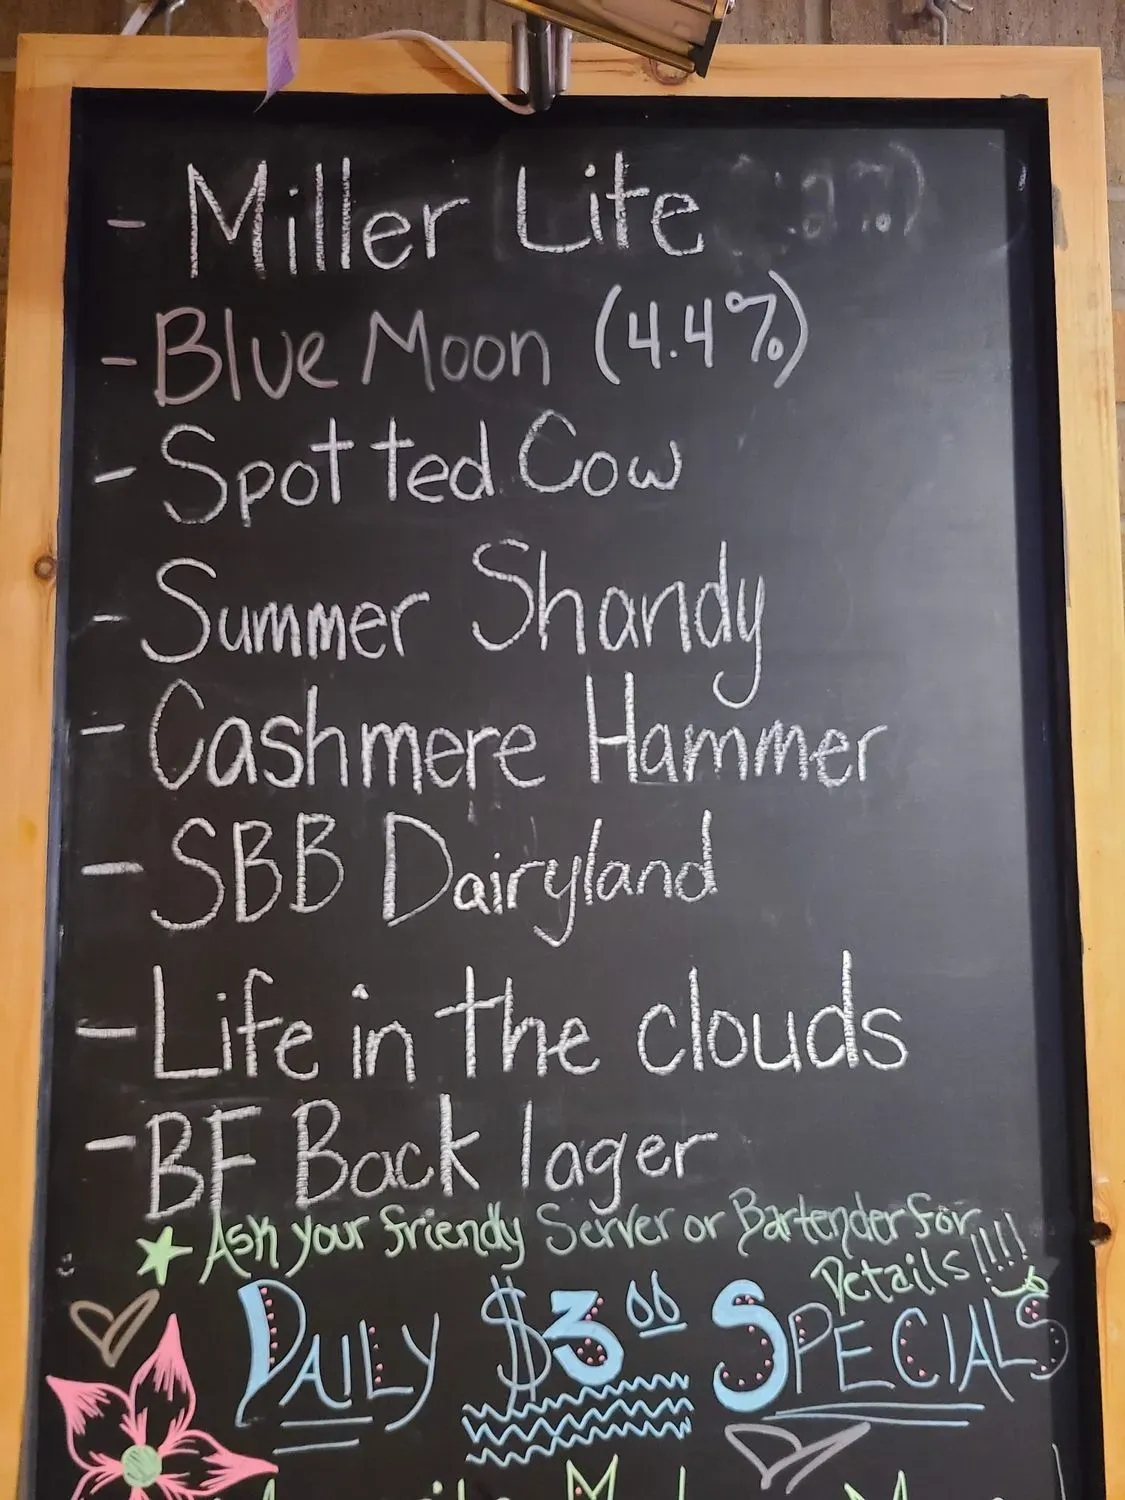 - Miller Lite
- Blue Moon (4.4%)
- Spotted Cow
- Summer Shandy
- Cashmere Hammer
- SBB Dairyland
- Life in the clouds
- BF Back lager
Ask your friendly Server or Bartender for
Details!!!!
DAILY $3.00 SPECIALS